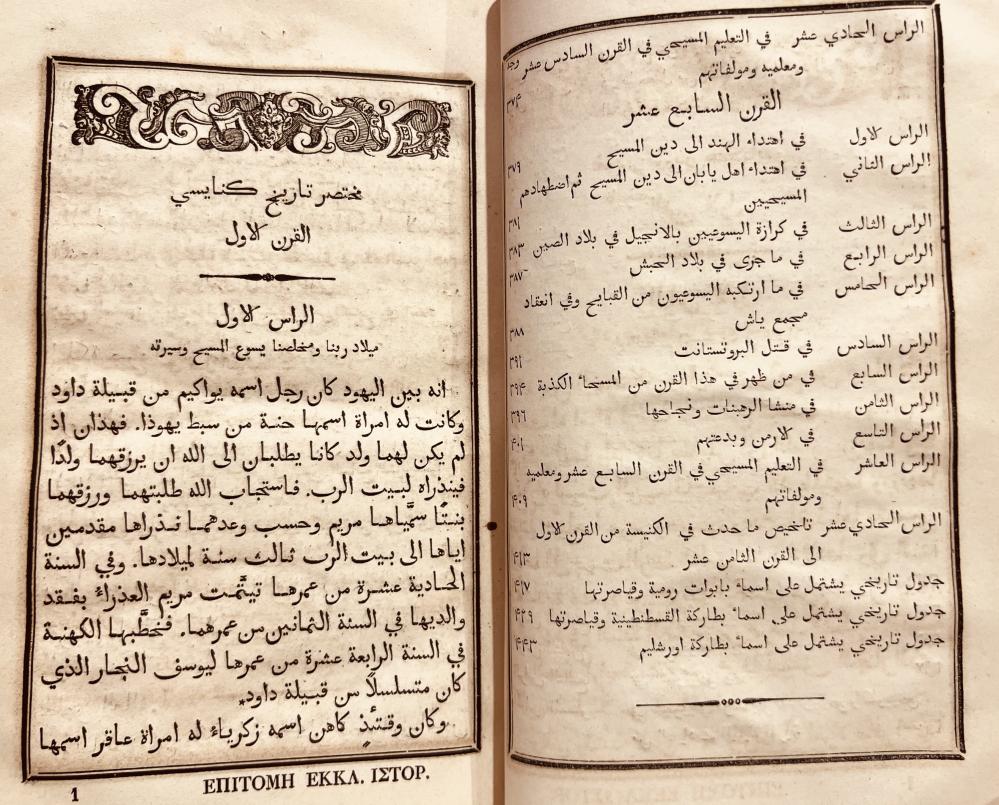 الراس الحادي عشر في التعليم المسيحي في القرن السادس عشر وجه
ومعلميه ومولفاتهم ٣٧٤
القرن السابع عشر
الراس الاول في اهتداء الهند الى دين المسيح ٣٧٩
الراس الثاني في اهتداء اهل يابان الى دين المسيح ثم اضطهادهم
المسيحيين ٣٨١
الراس الثالث في كرازة اليسوعيين بالانجيل في بلاد الصين ٣٨٣
الراس الرابع في ما جرى في بلاد الحبش ٣٨٧
الراس الخامس في ما ارتكبه اليسوعيون من القبايح وفي انعقاد
مجمع ياش ٣٨٨
الراس السادس في قتل البروتستانت ٣٩١
الراس السابع في من ظهر في هذا القرن من المسحاء الكذبة ٣٩٤
الراس الثامن في منشا الرهبنات ونجاحها ٣٩٦
الراس التاسع في الارمن وبدعتهم ٤٠١
الراس العاشر في التعليم المسيحي في القرن السابع عشر ومعلميه
ومولفاتهم ٤٠٩
الراس الحادي عشر تلخيص ما حدث في الكنيسة من القرن الاول
الى القرن الثامن عشر ٤١٣
جدول تاريخي يشتمل على اسماء بابوات رومية وقياصرتها ٤١٧
جدول تاريخي يشتمل على اسماء بطاركة القسطنطينية وقياصرتها ٤٢٩
جدول تاريخي يشتمل على اسماء بطاركة اورشليم ٤٤٣
مختصر تاريخ كنايسي
القرن الاول
الراس الاول
ميلاد ربنا ومخلصنا يسوع المسيح وسيرته
انه بين اليهود كان رجل اسمه يواكيم من قبيلة داود
وكانت له امراة اسمها حنة من سبط يهوذا. فهذان اذ
لم يكن لهما ولد كانا يطلبان الى الله ان يرزقهما ولدًا
فينذراه لبيت الرب. فاستجاب الله طلبتهما ورزقهما
بنتًا سمَّياها مريم وحسب وعدهما نذراها مقدمين
اياها الى بيت الرب ثالث سنة لميلادها. وفي السنة
الحادية عشرة من عمرها تيتَّمت مريم العذراء بفقد
والديها في السنة الثمانين من عمرهما. فخطَّبها الكهنة
في السنة الرابعة عشرة من عمرها ليوسف النجار الذي
كان متسلسلًا من قبيلة داود.
وكان وقتئذٍ كاهن اسمه زكرياء له امراة عاقر اسمها
1 ΕΠΙΤΟΜΗ ΕΚΚΛ. ΙΣΤΟΡ.